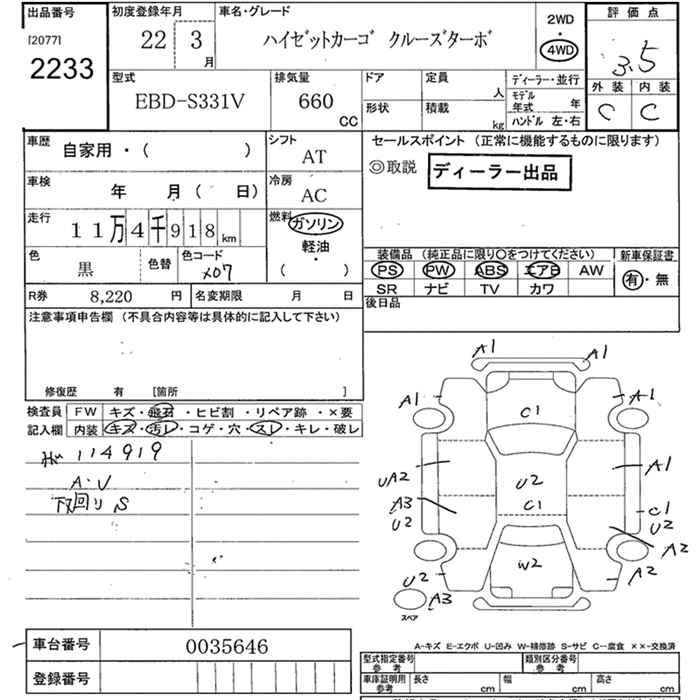 出品番号
[2077]
2233
初度登録年月
22 3月
車名・グレード
ハイゼットカーゴ クルーズターボ
2WD
・
4WD
評価点
3.5
外装 内装
C C
型式
EBD-S331V
排気量
660
CC
ドア
定員
人
形状
積載
kg
ディーラー・並行
モデル年式 年
ハンドル 左・右
車歴
自家用・( )
シフト
AT
車検
年 月( 日)
冷房
AC
走行
11万4千918km
燃料
ガソリン
軽油・
( )
色
黒
色替
色コード
X07
R券 8,220 円
名変期限 月 日
セールスポイント (正常に機能するものに限ります)
◎取説 ディーラー出品
装備品 (純正品に限り〇をつけてください)
PS PW ABS エアB AW
SR ナビ TV カワ
新車保証書
有・無
後日品
注意事項申告欄 (不具合内容等は具体的に記入して下さい)
修復歴 有 [箇所 ]
検査員記入欄
FW キズ・飛石・ヒビ割・リペア跡・×要
内装 キズ・汚レ・コゲ・穴・スレ・キレ・破レ
114919
A・V
下回りS
A1 A1
A1 C1 A1
UA2 U2 A1
A3 U2 C1 C1 U2
A2
U2 W2 A2
A3
スペア
A-キズ E-エクボ U-凹み W-補修跡 S-サビ C-腐食 ××-交換済
車台番号 0035646
登録番号
型式指定番号 参考
類別区分番号 参考
車庫証明用 参考
長さ cm
幅 cm
高さ cm